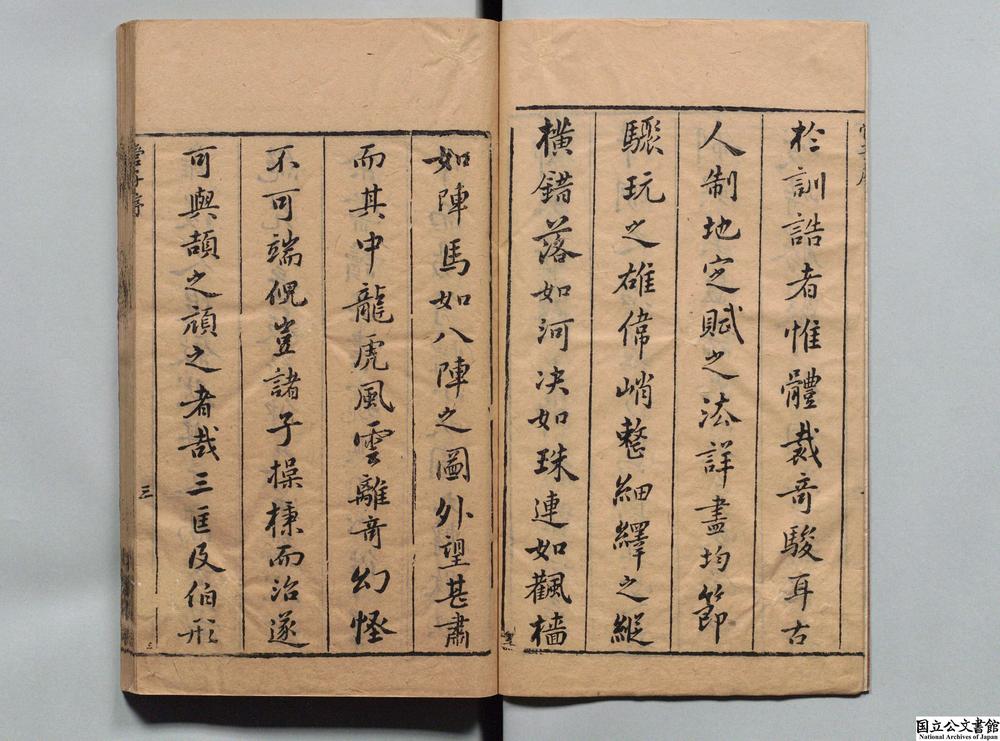 於訓誥者惟體裁奇駿耳古
人制地定賦之法詳盡均節
驟玩之雄偉峭整細繹之縱
橫錯落如河决如珠連如颿檣
如陣馬如八陣之圖外望甚肅
而其中龍虎風雲離奇幻怪
不可端倪豈諸子操槧而治遂
可與頡之頏之者哉三匡及伯形
三
国立公文書館
National Archives of Japan